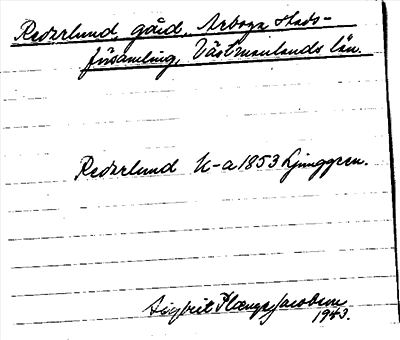 Rederlund, gård, Arboga stads-
församling, Västmanlands län.
Rederlund K-a 1853 Ljunggren.
Sigbrit Plænge Jacobson
1943.